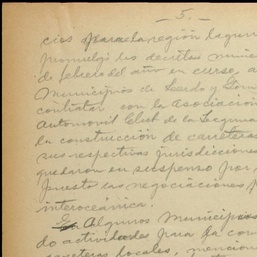 - 5. -
cios para la región lagun
promulgó los decretos núme
de febrero del año en curso, a
Municipios de Lerdo y Góm
contratar con la Asociación
Automovil Club de la Laguna
la construcción de carreteras
sus respectivas jurisdicciones
quedaron en suspenso por
puesto las negociaciones
interoceánica.
Algunos Municipios
do actividades para la con
carreteras locales, mencion